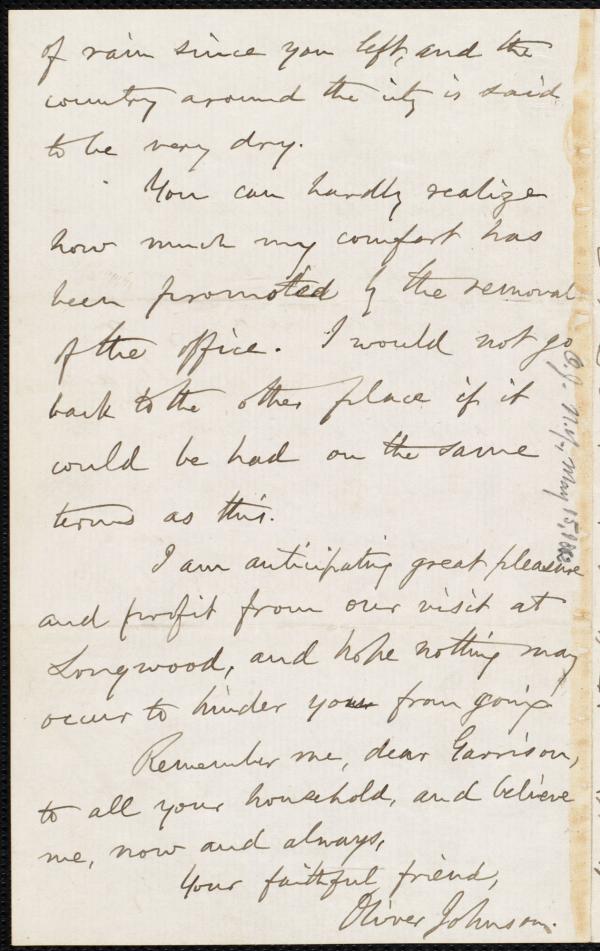 of rain since you left, and the
country around the city is said
to be very dry.
You can hardly realize
how much my comfort has
been promoted by the removal
of the office. I would not go
back to the other place if it
could be had on the same
terms as this.
I am anticipating great pleasure
and profit from our visit at
Longwood, and hope nothing may
occur to hinder your from going.
Remember me, dear Garrison,
to all your household, and believe
me, now and always,
Your faithful friend,
Oliver Johnson.
O.J. N.Y., May 15,